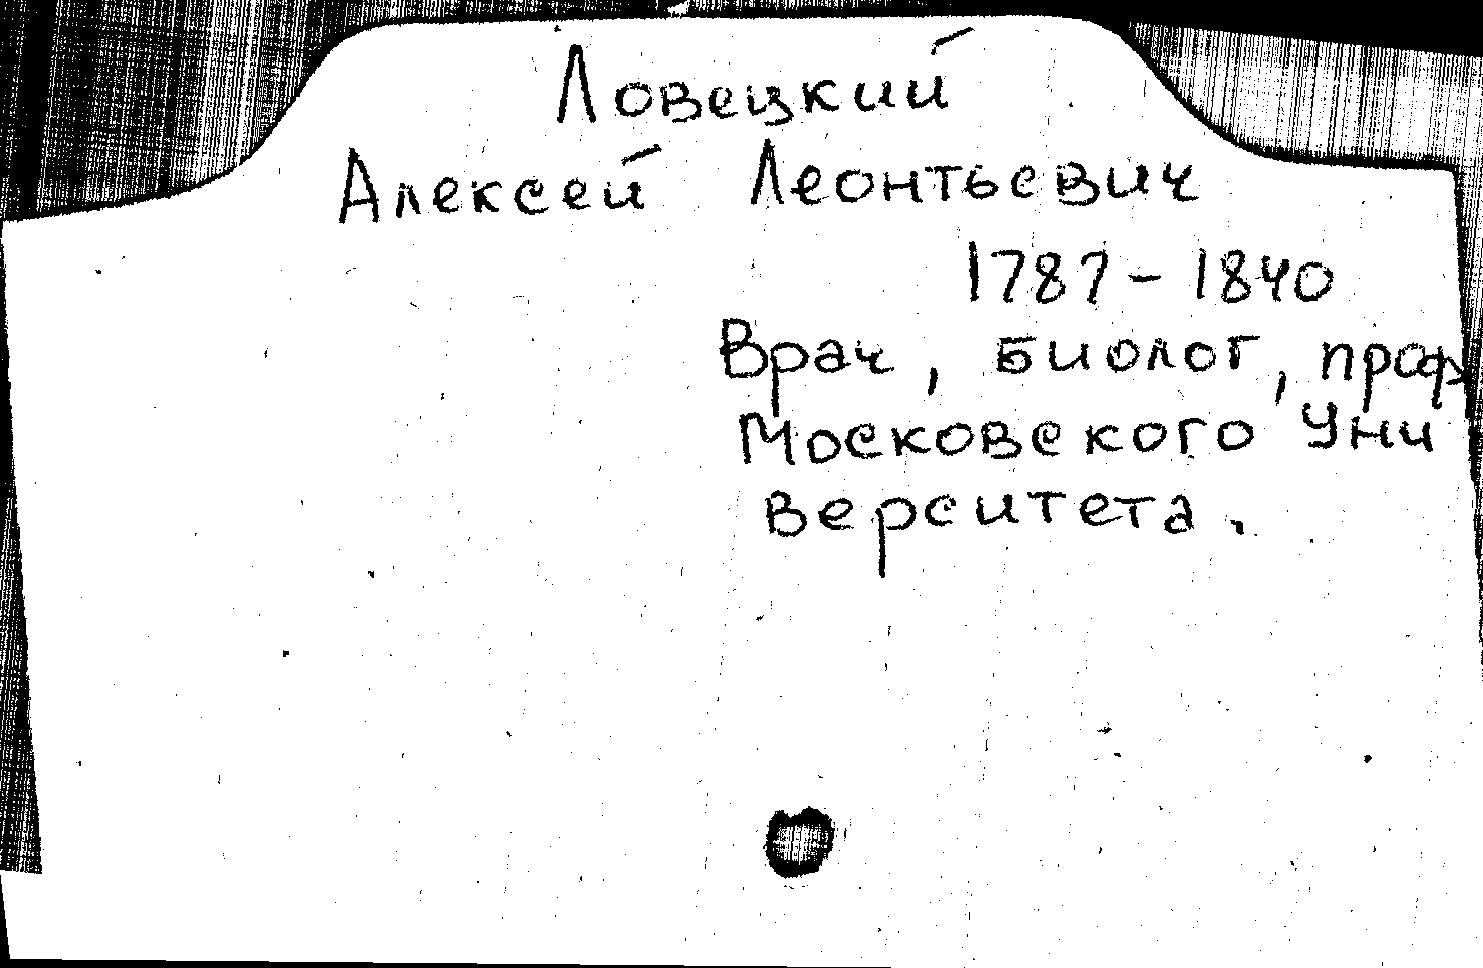 Ловецкий
Алексей Леонтьевич
1787-1840
Врач, биолог, проф
Московского Уни
верситета.